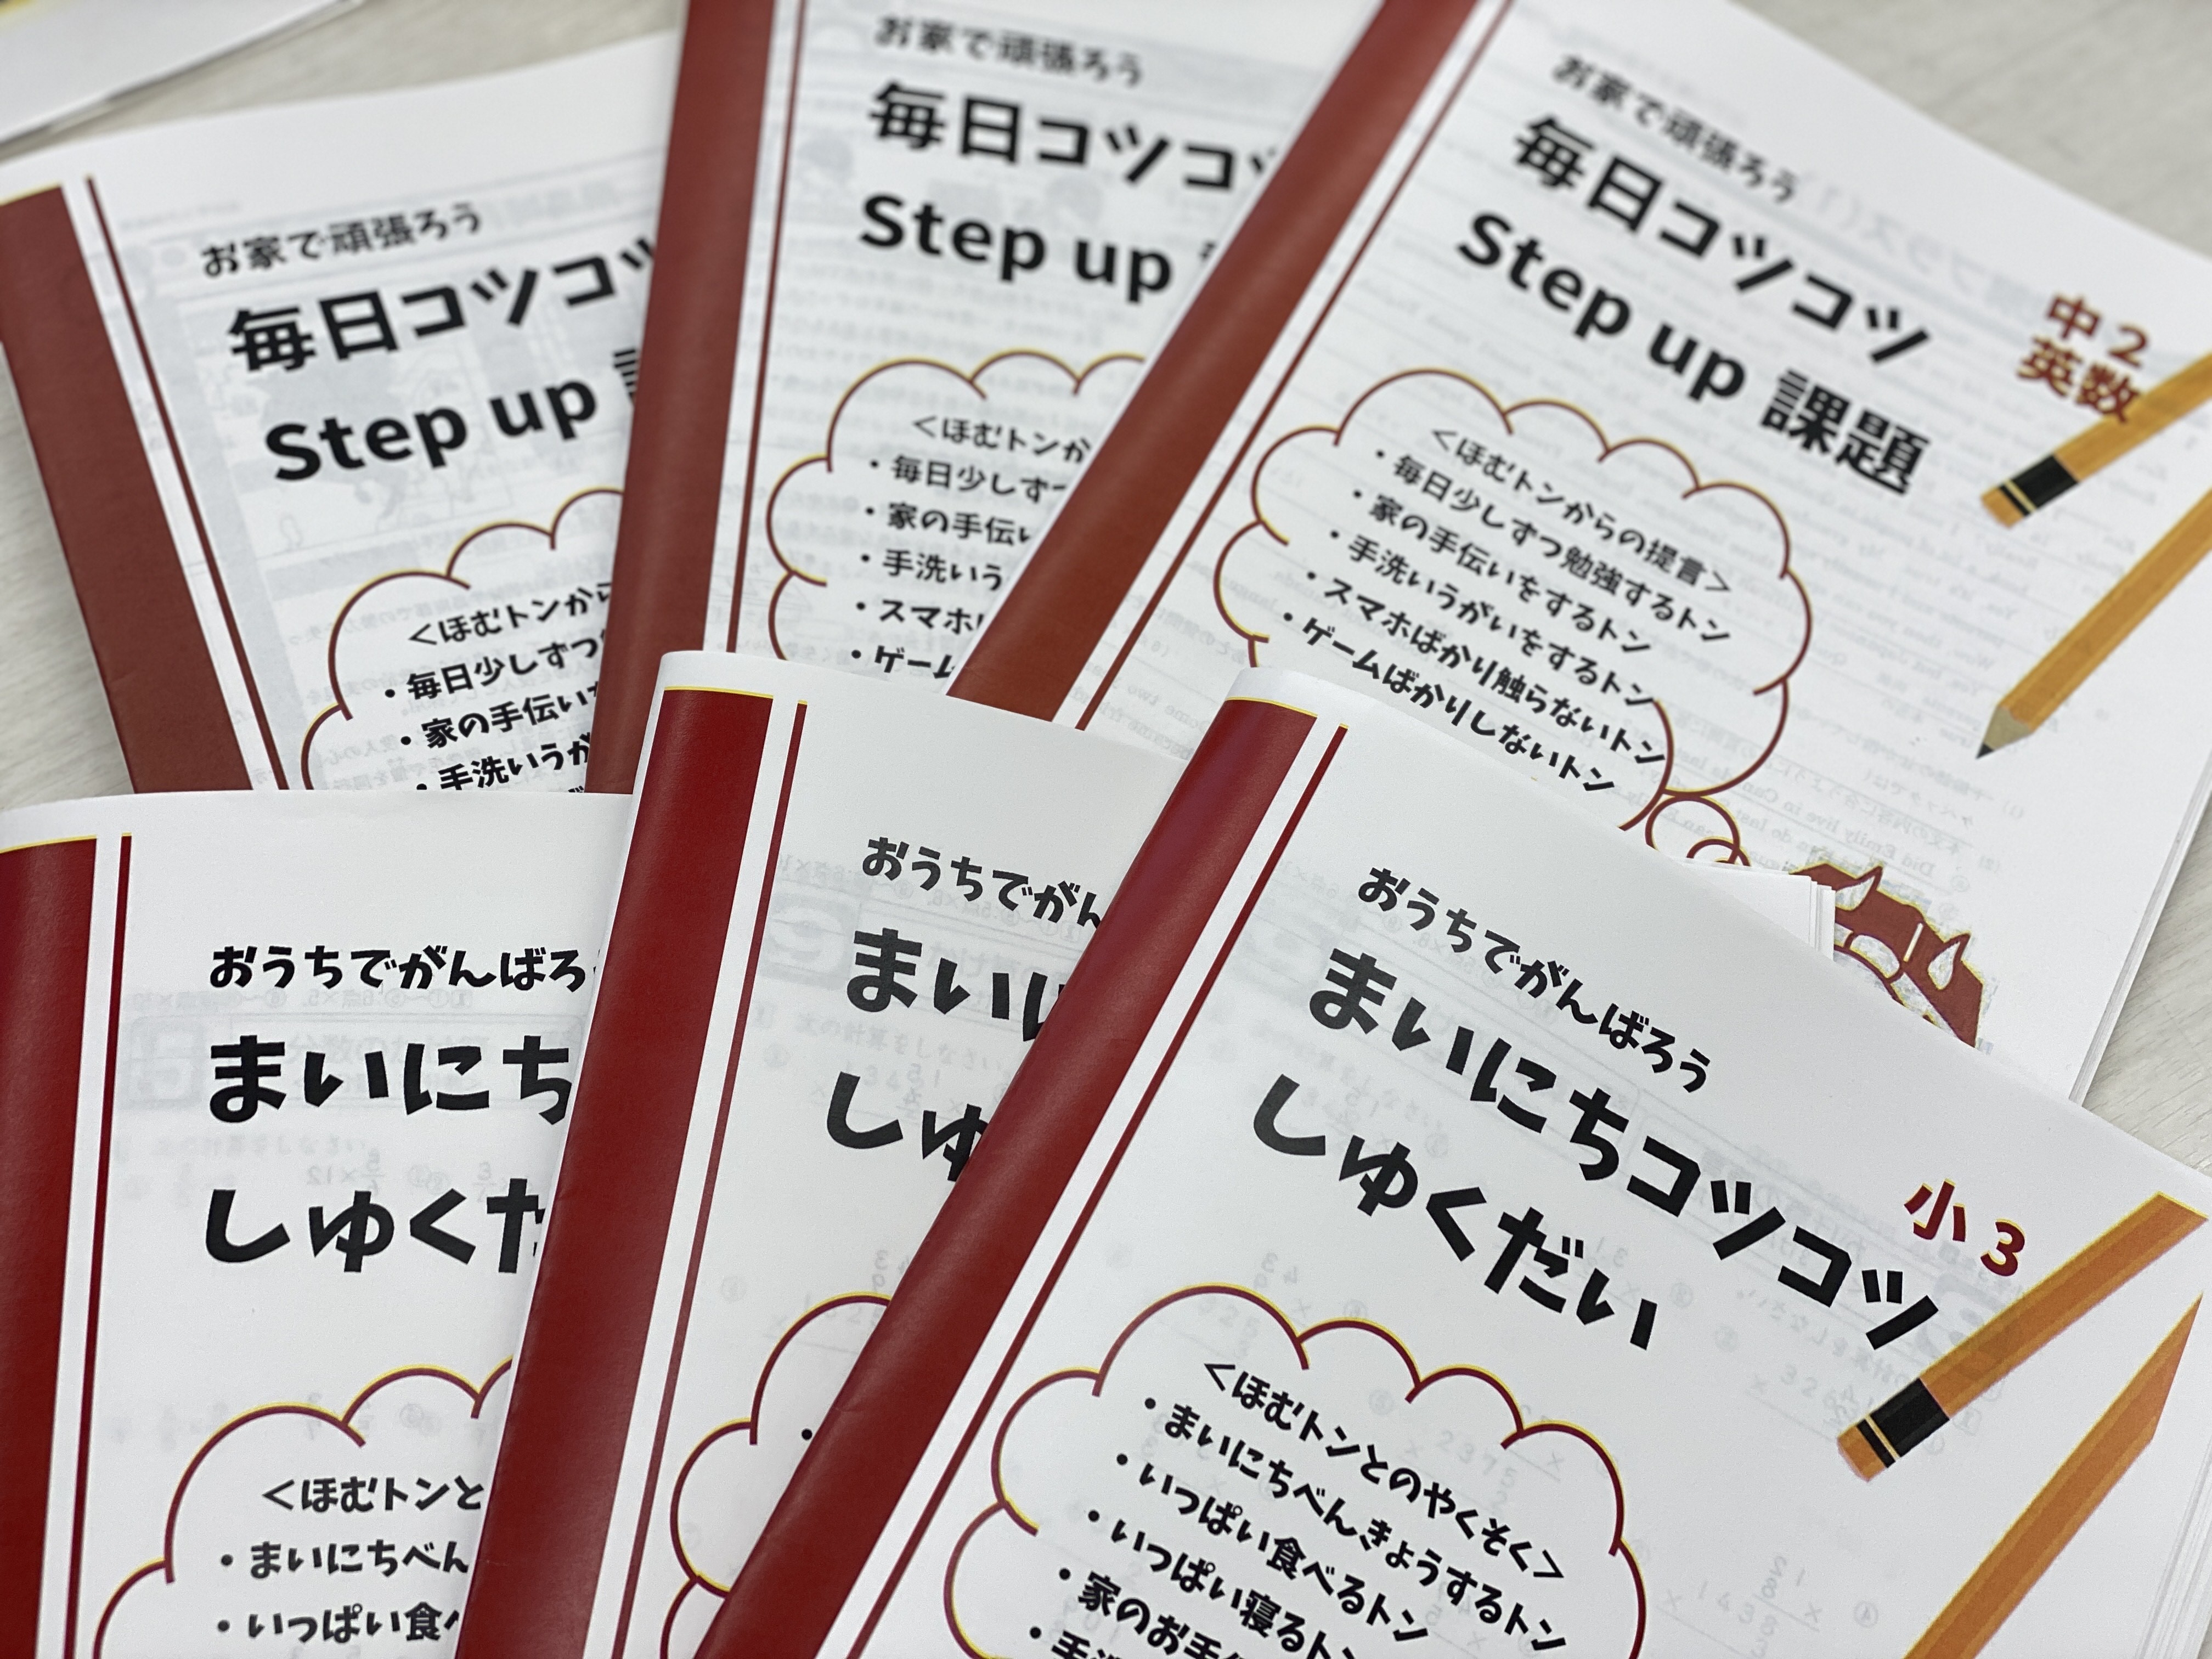 お家で頑張ろう
毎日コツコツ
Step up
<ほむトンから
・毎日少しずつ
・家の手伝い
・手洗いうが
お家で頑張ろう
毎日コツコツ
Step up
<ほむトンか
・毎日少しずつ
・家の手伝い
・手洗いう
・スマホ
・ゲーム
お家で頑張ろう
毎日コツコツ
Step up 課題
中2
英数
<ほむトンからの提言>
・毎日少しずつ勉強するトン
・家の手伝いをするトン
・手洗いうがいをするトン
・スマホばかり触らないトン
・ゲームばかりしないトン
おうちでがんばろ
まいにち
しゅくだ
<ほむトンと
・まいにちべん
・いっぱい食べ
おうちでがん
まいに
しゅ
おうちでがんばろう
まいにちコツコツ
しゅくだい
小3
<ほむトンとのやくそく>
・まいにちべんきょうするトン
・いっぱい食べるトン
・いっぱい寝るトン
・家のお手伝
・手洗